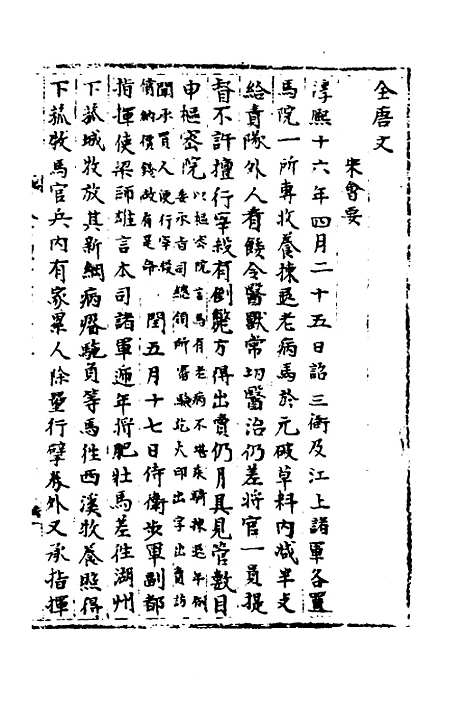 全唐文
宋會要
淳熙十六年四月二十五日詔三衙及江上諸軍各置
馬院一所專收養揀退老病馬於元破草料內減半支
給責隊外人看餧令醫獸常切醫治仍差將官一員提
督不許擅行宰殺有倒斃方得出賣仍月具見管數目
申樞密院
以樞密院言馬有老病不堪乘騎揀退年例
委承旨司總領所審驗訖火印出字出賣訪
聞承買人便行宰殺
償納價錢故有是命
閏五月十七日侍衛步軍副都
指揮使梁師雄言本司諸軍遞年將肥壯馬差往湖州
下菰城牧放其新綱病瘤駞負等馬往西溪牧養照得
下菰牧馬官兵內有家累人除壘行擘券外又承指揮